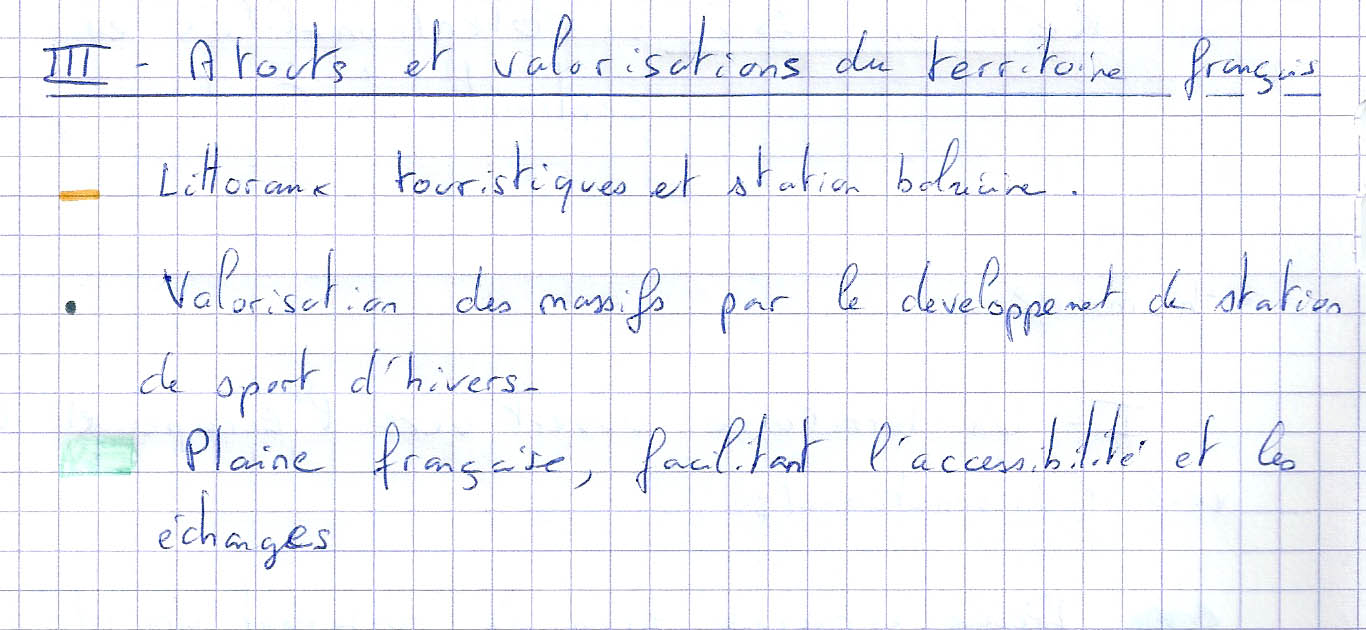 III - Atouts et valorisations du territoire français
Littoraux touristiques et station balnéaire.
Valorisation des massifs par le developpement de station
de sport d'hivers.
Plaine française, facilitant l'accessibilité et les
échanges